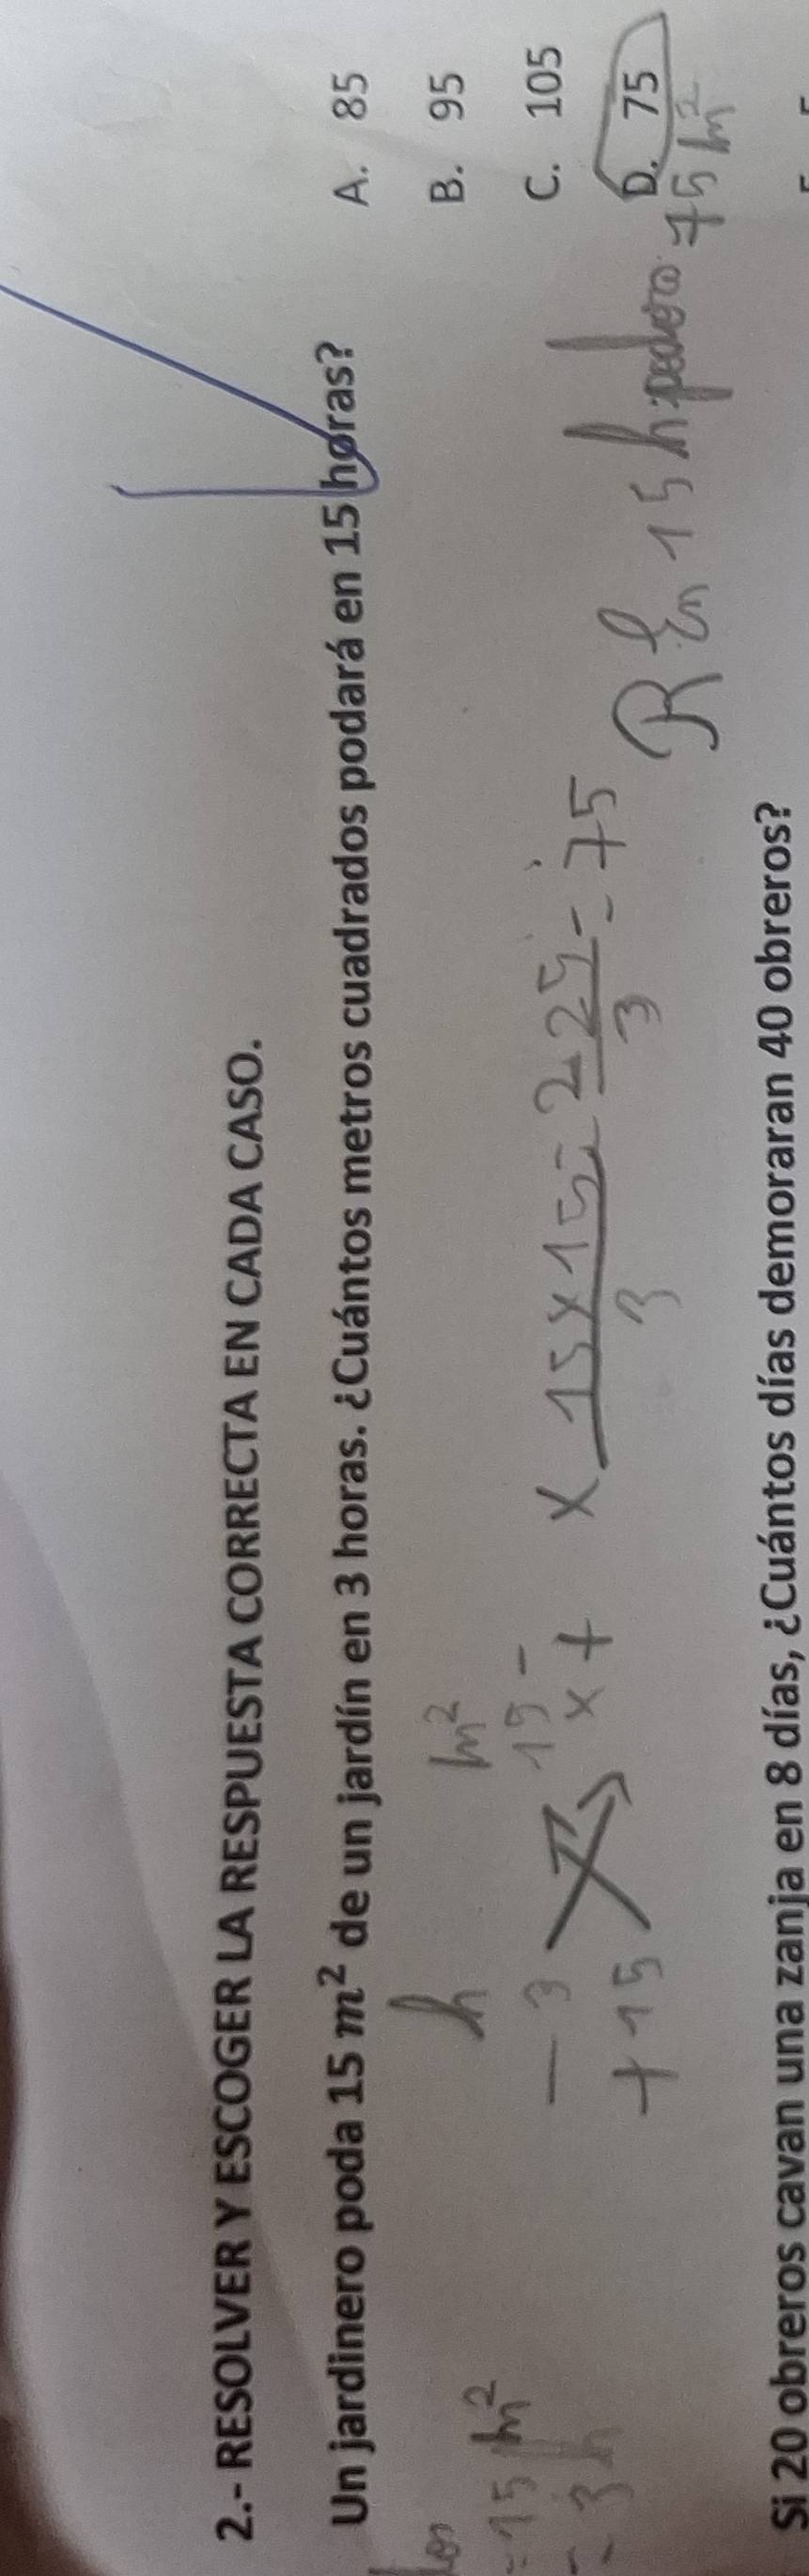 2.- RESOLVER Y ESCOGER LA RESPUESTA CORRECTA EN CADA CASO.
Un jardinero poda 15 m² de un jardín en 3 horas. ¿Cuántos metros cuadrados podará en 15 horas?
A. 85
B. 95
C. 105
D. 75
= 15 m²
= 3 h
h m²
- 3 15 -
+ 15 x +
x 15 x 15 = 225 = 75
3 3
R En 15 h podara 75 m²
Si 20 obreros cavan una zanja en 8 días, ¿Cuántos días demoraran 40 obreros?